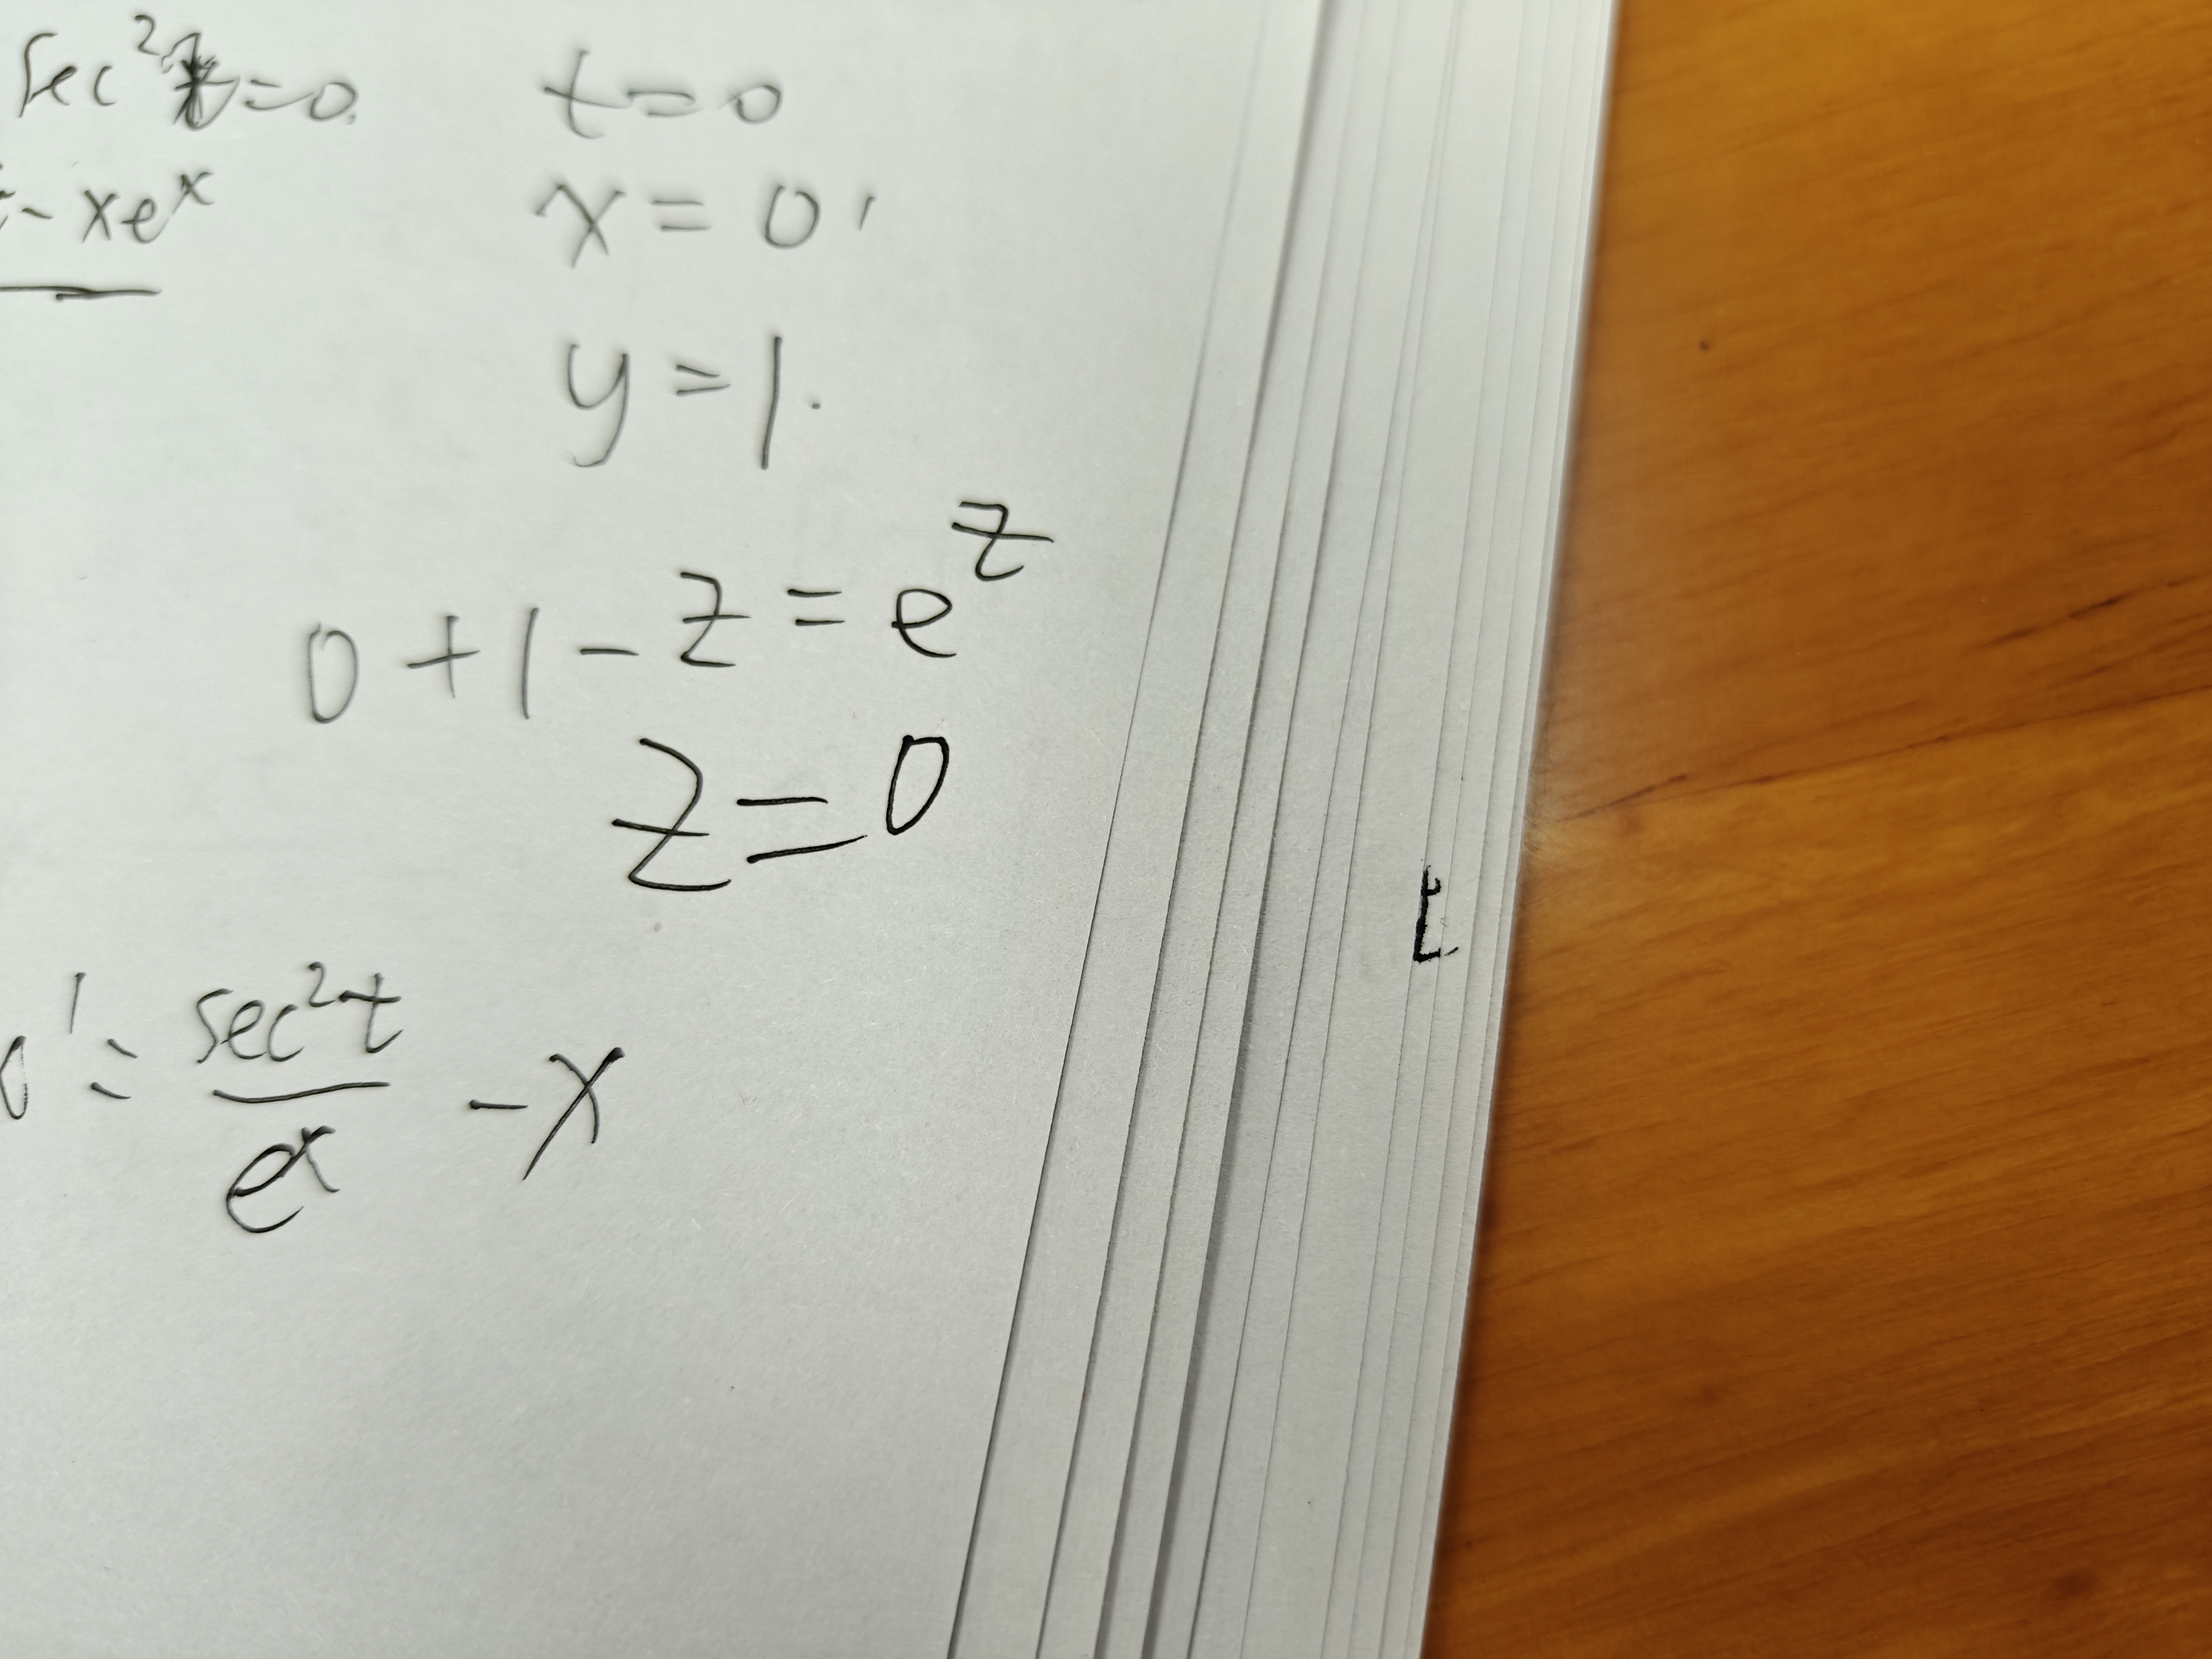 sec²t=0. t=0
- xeˣ x=0,
y=1.
0+1-z=e^z
z=0
' = sec²t/eˣ -x